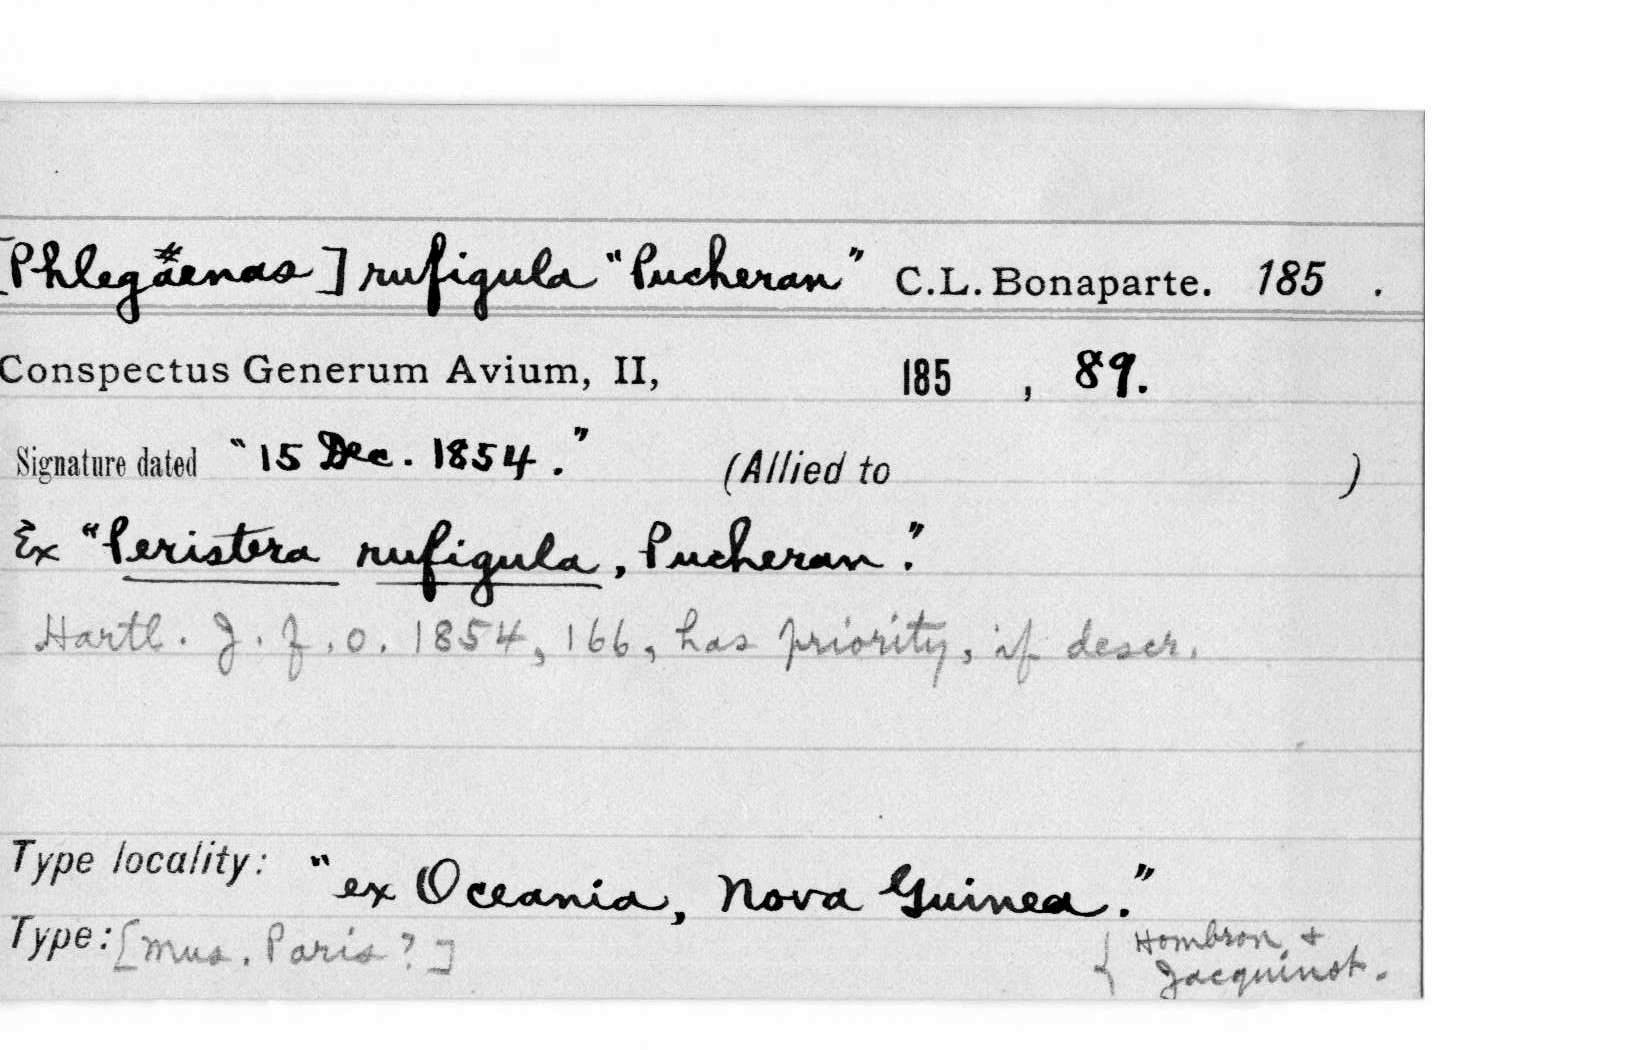 [Phlegæenas] rufigula "Pucheran" C.L. Bonaparte. 185 .
Conspectus Generum Avium, II, 185 , 89.
Signature dated "15 Dec. 1854." (Allied to )
Ex "Peristera rufigula, Pucheran."
Hartl. J. f. o. 1854, 166, has priority, if descr.
Type locality: "ex Oceania, Nova Guinea."
Type: [Mus. Paris?] { Hombron +
Jacquinot.